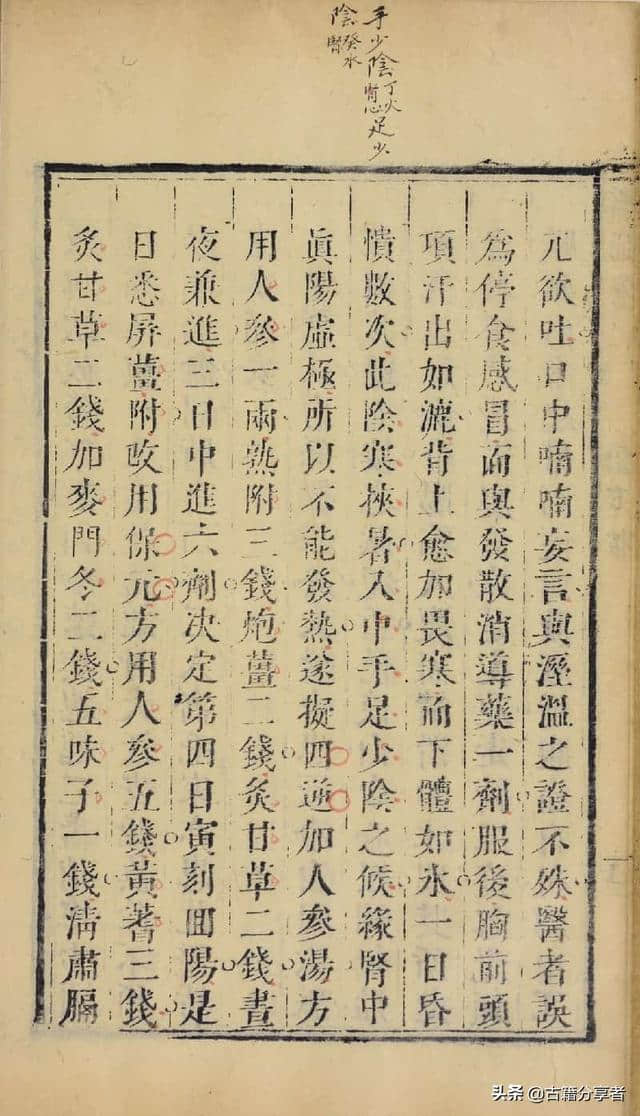 手少陰丁火心足少
陰癸水腎
兀欲吐口中喃喃妄言與溼溫之證不殊醫者誤
為停食感冒而與發散消導藥一劑服後胸前頭
項汗出如漉背上愈加畏寒而下體如氷一日昏
憒數次此陰寒挾暑入中手足少陰之候緣腎中
眞陽虛極所以不能發熱遂擬四逆加人參湯方
用人參一兩熟附三錢炮薑二錢炙甘草二錢晝
夜兼進三日中進六劑決定第四日寅刻回陽是
日悉屏薑附改用保元方用人參五錢黃蓍三錢
炙甘草二錢加麥門冬二錢五味子一錢淸肅膈
头条@古籍分享者